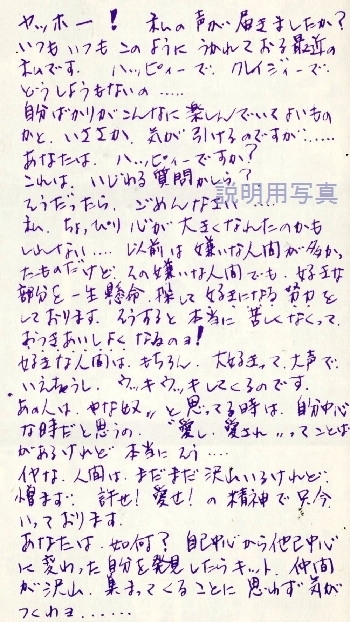 ヤッホー! 私の声が届きましたか?
いつもいつもこのようにうかれておる最近の
私です。ハッピィーで、クレイジーで
どうしようもないの.....
自分ばかりがこんなに楽しんでいてよいもの
かと、いささか、気が引けるのですが.....
あなたは、ハッピィーですか?
これは、いじわる質問かしら?
説明用写真
そうだったら、ごめんなさい....
私、ちょっぴり心が大きくなれたのかも
しれない.... 以前は嫌いな人間が多かっ
たものだけど、その嫌いな人間でも、好きな
部分を一生懸命、探して好きになる努力を
しております。そうすると本当に苦しくなくって、
おつきあいしよくなるのョ!
好きな人間は、もちろん、大好きって、大声で
いえちゃうし、ウッキウッキしてくるのです。
あの人は、やな奴〃と思ってる時は、自分中心
な時だと思うの、〝愛し、愛され〃ってことば
があるけれど本当にそう....
イヤな、人間は、まだまだ沢山いるけれど、
憎まず、許せ!愛せ!の精神で只今、
いっております。
あなたは、如何? 自己中心から他己中心
に変わった自分を発見したらキット、仲間
が沢山、集まってくることに思わず気が
つくわョ......